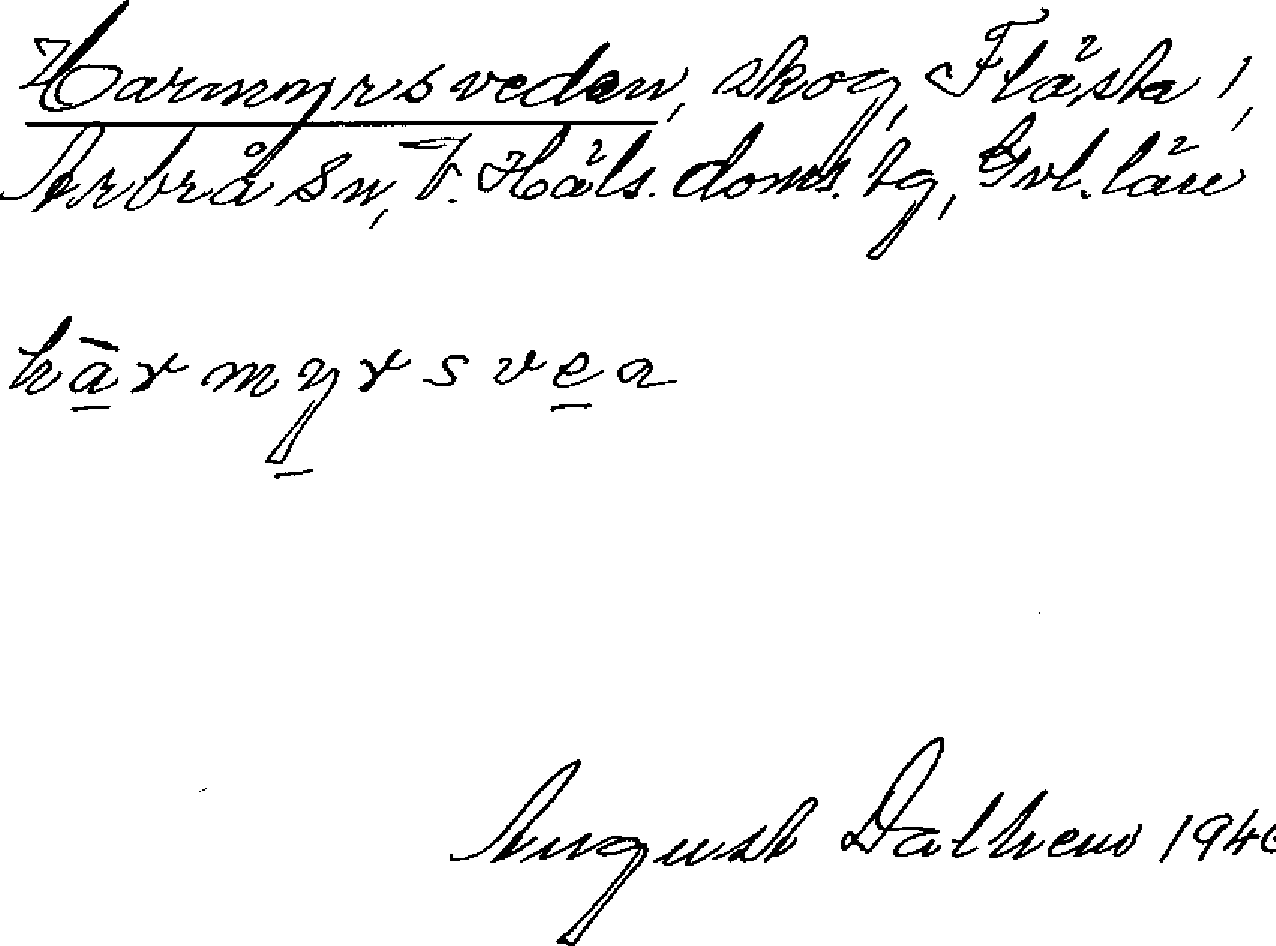 Harmyrsveden, skog, Flästa 1,
Arbrå sn, V. Häls. doms. tg, Gvl. län
hārmyrsvea
August Dalhem 194